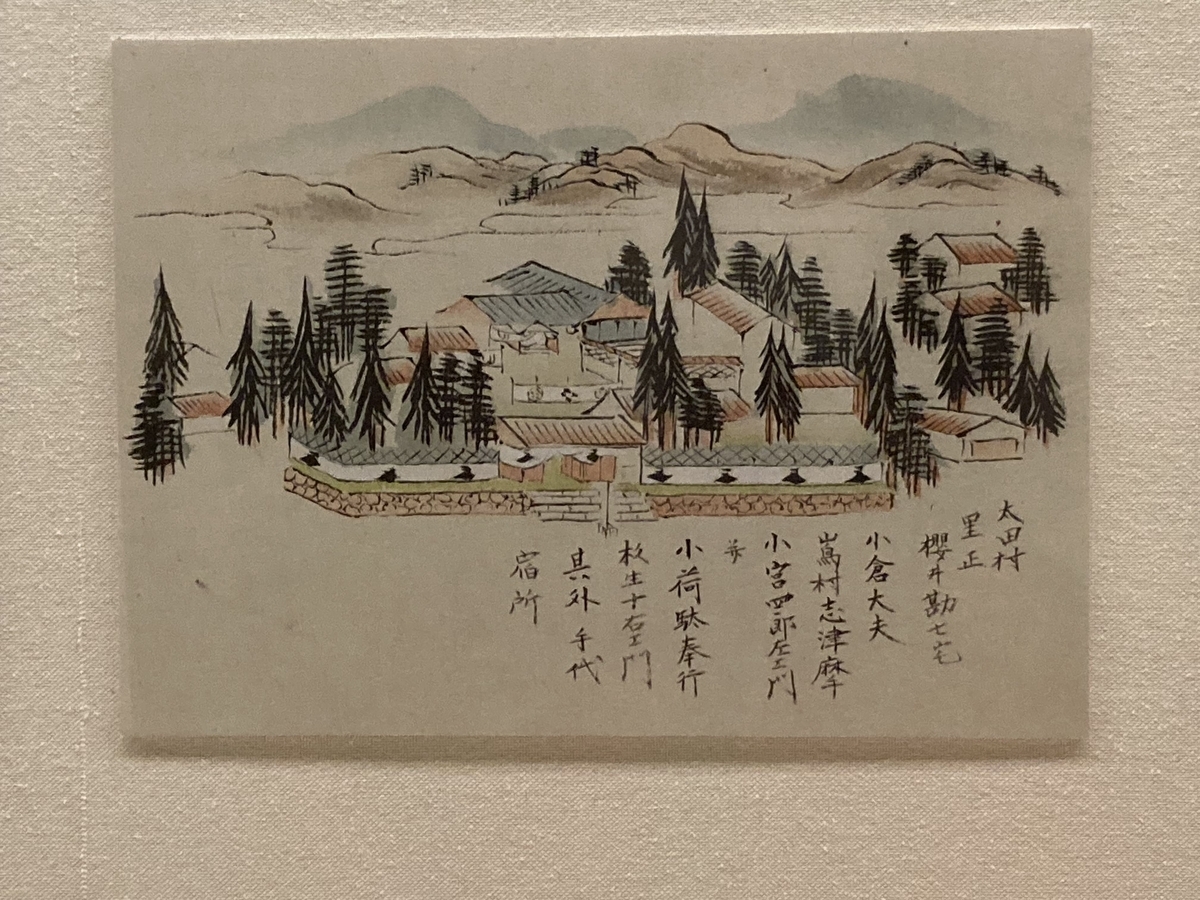 太田村
里正
櫻井勘七宅
小倉大夫
嶌村志津摩
小宮四郎左エ門
并
小荷駄奉行
枚生十右エ門
其外手代
宿所